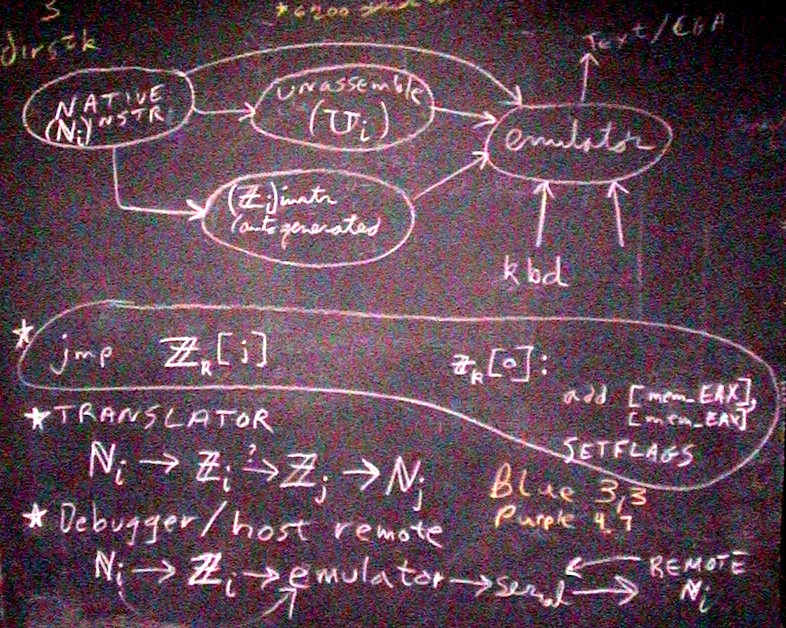 S
dirstk
*6200
Text/CGA
NATIVE
(Nᵢ) INSTR.
unassemble
(Uᵢ)
emulator
(ℤᵢ) instr
(auto generated
kbd
* jmp ℤR[i]
ℤR[0]:
add [mem_EAX],
[mem_EAX]
SETFLAGS
* TRANSLATOR
Nᵢ → ℤᵢ ?→ ℤⱼ → Nⱼ
Blue 3,3
Purple 4,7
* Debugger/host remote
Nᵢ → ℤᵢ → emulator → serial
REMOTE
Nᵢ